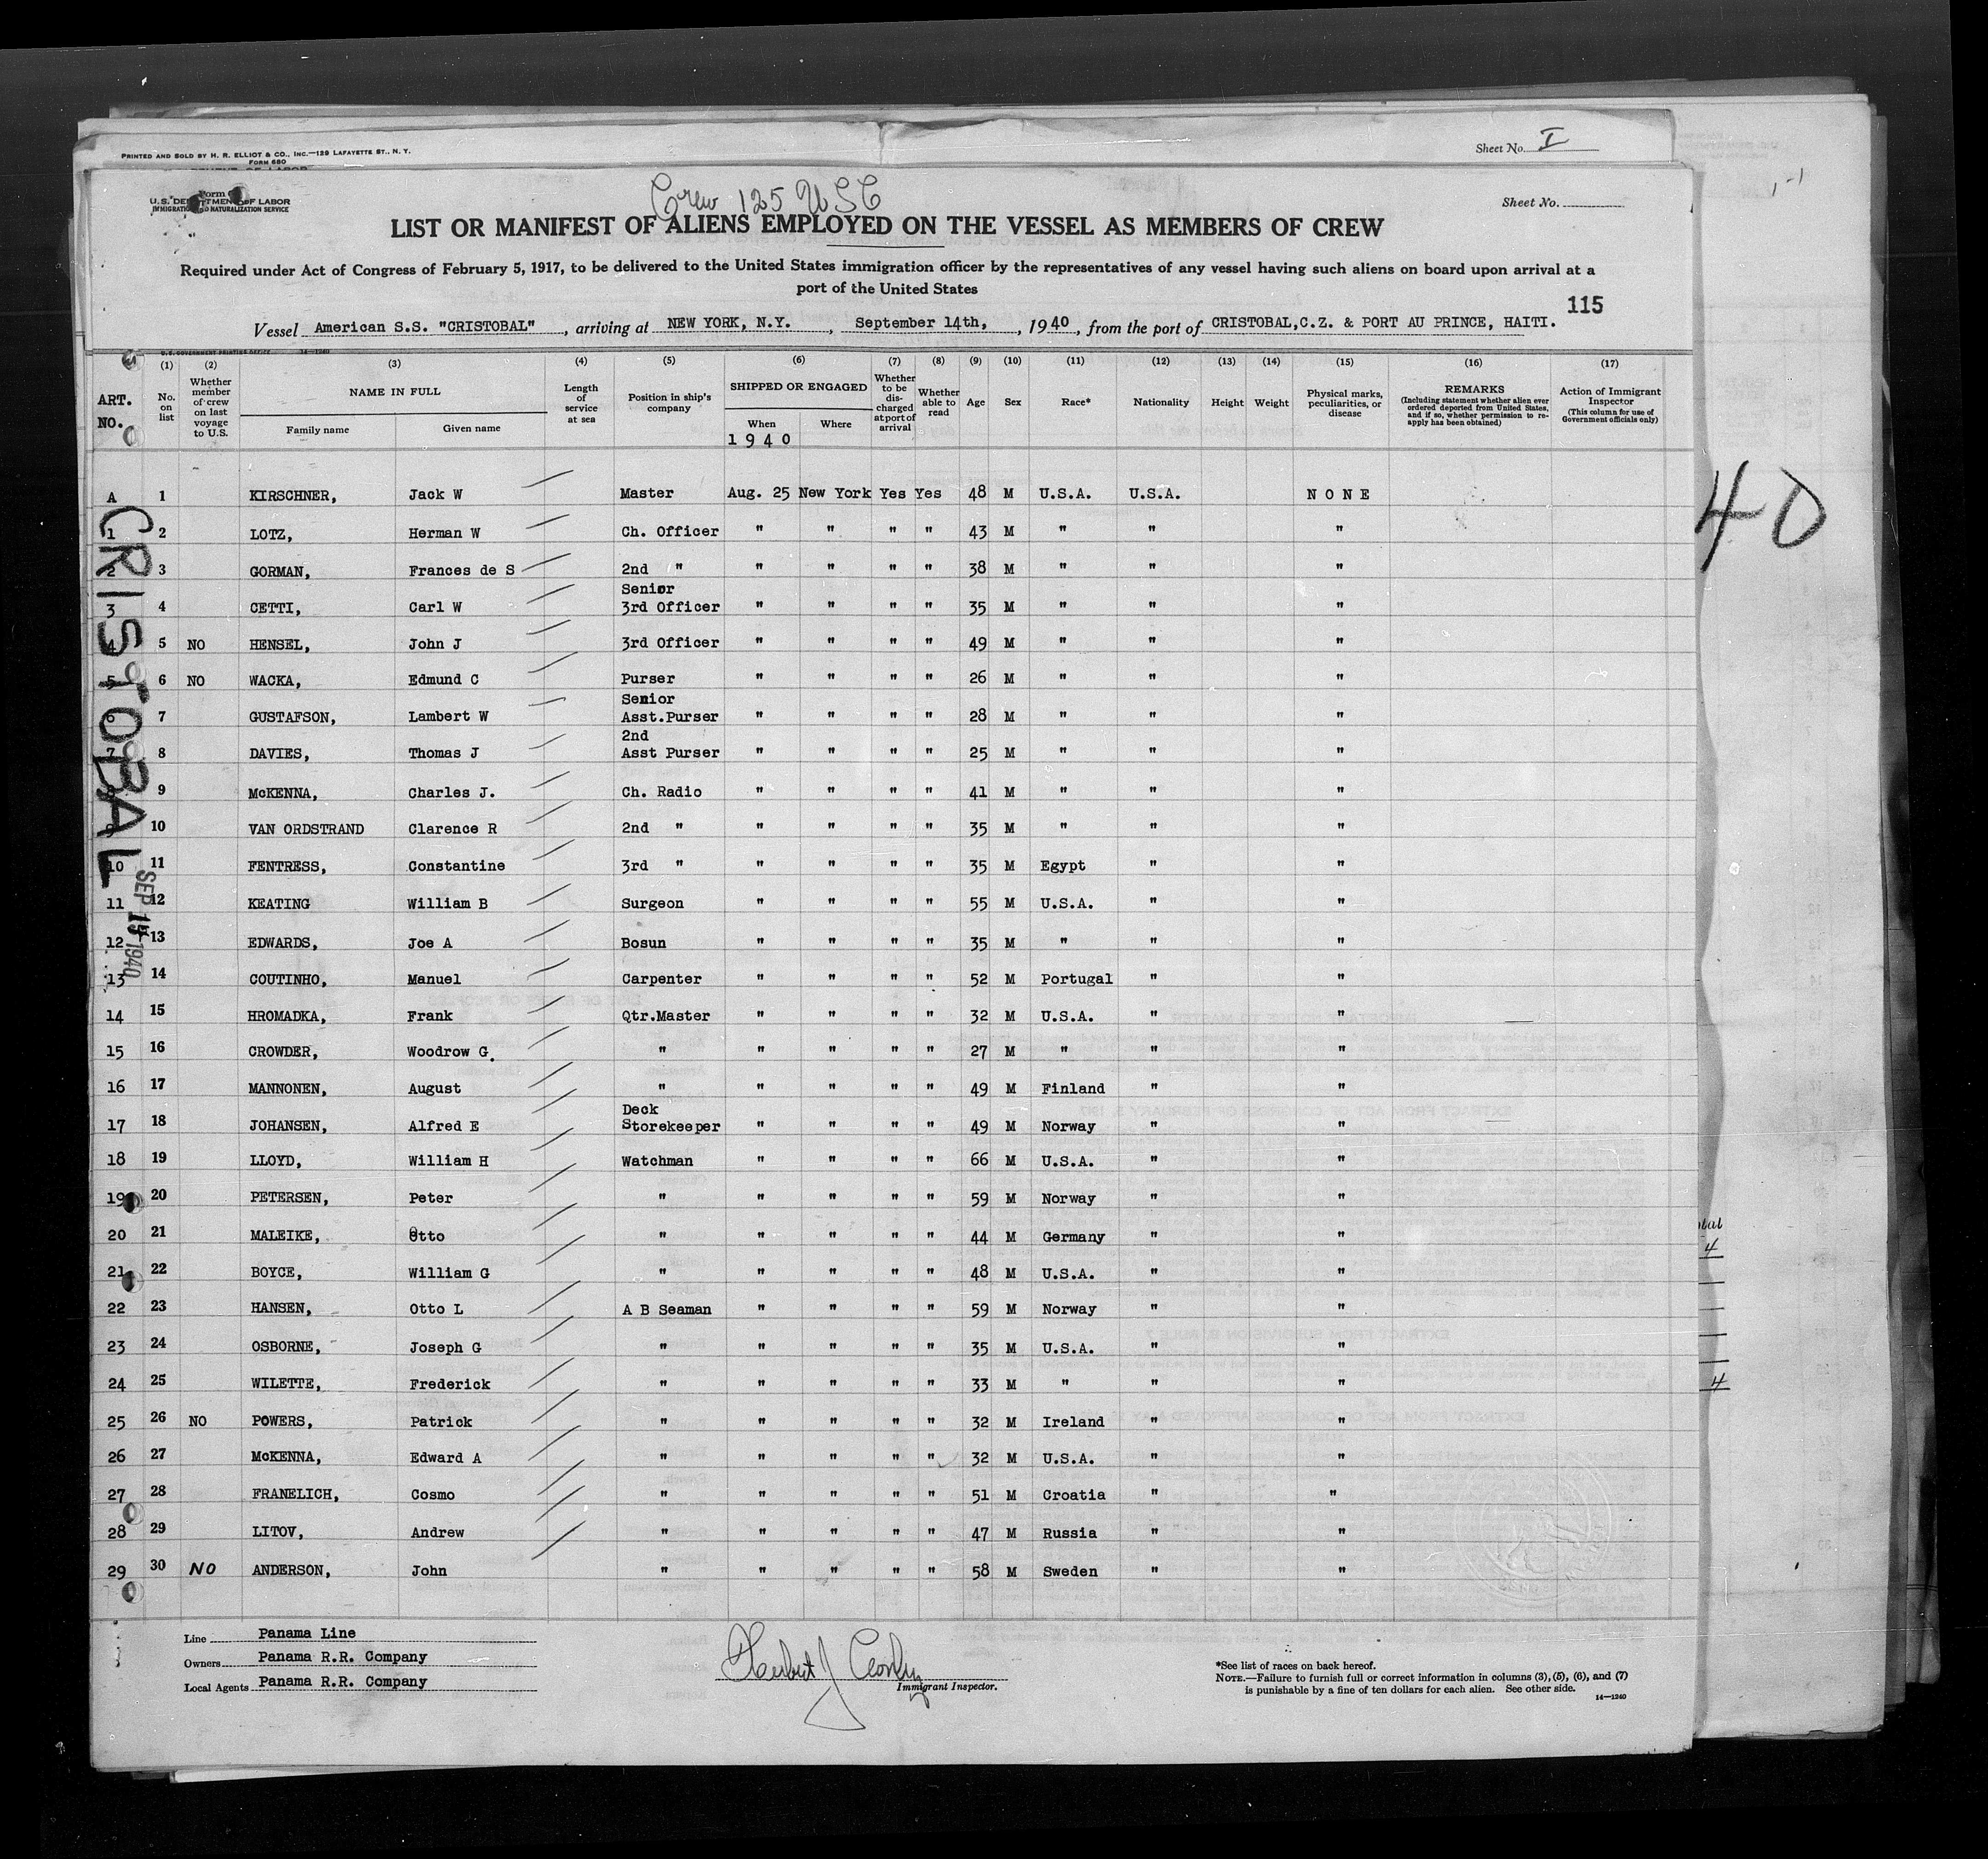 PRINTED AND SOLD BY H. R. ELLIOT & CO., INC.—129 LAFAYETTE ST., N. Y.
FORM 680
Sheet No. I
Form
U.S. DEPARTMENT OF LABOR
IMMIGRATION AND NATURALIZATION SERVICE
Crew 125 USC
Sheet No.
LIST OR MANIFEST OF ALIENS EMPLOYED ON THE VESSEL AS MEMBERS OF CREW
Required under Act of Congress of February 5, 1917, to be delivered to the United States immigration officer by the representatives of any vessel having such aliens on board upon arrival at a
port of the United States
115
Vessel American S.S. "CRISTOBAL", arriving at NEW YORK, N.Y., September 14th, , 1940, from the port of CRISTOBAL,C.Z. & PORT AU PRINCE, HAITI.
U.S. GOVERNMENT PRINTING OFFICE 14—1240
(1) (2) (3) (4) (5) (6) (7) (8) (9) (10) (11) (12) (13) (14) (15) (16) (17)
ART. NO. | No. on list | Whether member of crew on last voyage to U.S. | NAME IN FULL Family name Given name | Length of service at sea | Position in ship's company | SHIPPED OR ENGAGED When 1940 Where | Whether to be discharged at port of arrival | Whether able to read | Age | Sex | Race* | Nationality | Height | Weight | Physical marks, peculiarities, or disease | REMARKS (Including statement whether alien ever ordered deported from United States, and if so, whether permission to reapply has been obtained) | Action of Immigrant Inspector (This column for use of Government officials only)
A 1 KIRSCHNER, Jack W Master Aug. 25 New York Yes Yes 48 M U.S.A. U.S.A. N O N E
1 2 LOTZ, Herman W Ch. Officer " " " " 43 M " " "
2 3 GORMAN, Frances de S 2nd " " " " " 38 M " " "
3 4 CETTI, Carl W Senior 3rd Officer " " " " 35 M " " "
4 5 NO HENSEL, John J 3rd Officer " " " " 49 M " " "
5 6 NO WACKA, Edmund C Purser " " " " 26 M " " "
6 7 GUSTAFSON, Lambert W Senior Asst.Purser " " " " 28 M " " "
7 8 DAVIES, Thomas J 2nd Asst Purser " " " " 25 M " " "
9 McKENNA, Charles J. Ch. Radio " " " " 41 M " " "
9 10 VAN ORDSTRAND Clarence R 2nd " " " " " 35 M " " "
10 11 FENTRESS, Constantine 3rd " " " " " 35 M Egypt " "
11 12 KEATING William B Surgeon " " " " 55 M U.S.A. " "
12 13 EDWARDS, Joe A Bosun " " " " 35 M " " "
13 14 COUTINHO, Manuel Carpenter " " " " 52 M Portugal " "
14 15 HROMADKA, Frank Qtr.Master " " " " 32 M U.S.A. " "
15 16 CROWDER, Woodrow G. " " " " " 27 M " " "
16 17 MANNONEN, August " " " " " 49 M Finland " "
17 18 JOHANSEN, Alfred E Deck Storekeeper " " " " 49 M Norway " "
18 19 LLOYD, William H Watchman " " " " 66 M U.S.A. " "
19 20 PETERSEN, Peter " " " " " 59 M Norway " "
20 21 MALEIKE, Otto " " " " " 44 M Germany " "
21 22 BOYCE, William G " " " " " 48 M U.S.A. " "
22 23 HANSEN, Otto L A B Seaman " " " " 59 M Norway " "
23 24 OSBORNE, Joseph G " " " " " 35 M U.S.A. " "
24 25 WILETTE, Frederick " " " " " 33 M " " "
25 26 NO POWERS, Patrick " " " " " 32 M Ireland " "
26 27 McKENNA, Edward A " " " " " 32 M U.S.A. " "
27 28 FRANELICH, Cosmo " " " " " 51 M Croatia " "
28 29 LITOV, Andrew " " " " " 47 M Russia " "
29 30 NO ANDERSON, John " " " " " 58 M Sweden " "
CRISTOBAL
SEP 1940
40
4
4
Line Panama Line
Owners Panama R.R. Company
Local Agents Panama R.R. Company
Herbert J
Immigrant Inspector.
*See list of races on back hereof.
NOTE.—Failure to furnish full or correct information in columns (3), (5), (6), and (7)
is punishable by a fine of ten dollars for each alien. See other side.
14—1240